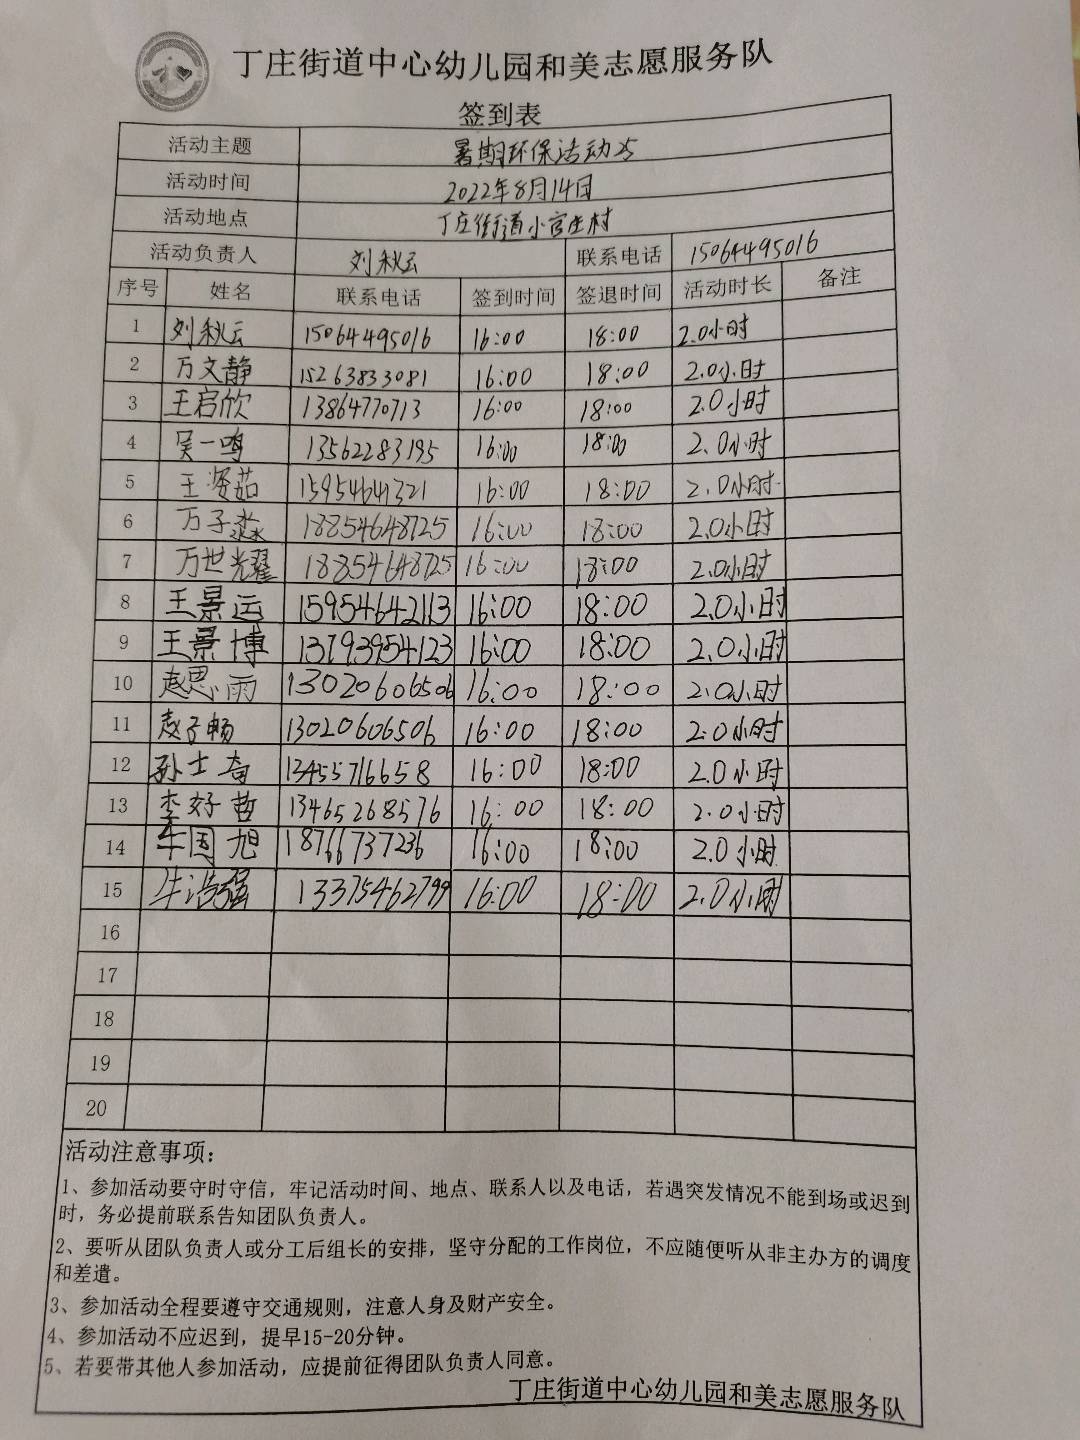 丁庄街道中心幼儿园和美志愿服务队
签到表
活动主题 暑期环保活动25
活动时间 2022年8月14日
活动地点 丁庄街道小官庄村
活动负责人 刘秋云 联系电话 15064495016
序号 姓名 联系电话 签到时间 签退时间 活动时长 备注
1 刘秋云 15064495016 16:00 18:00 2.0小时
2 万文静 15263833081 16:00 18:00 2.0小时
3 王启欣 13864770713 16:00 18:00 2.0小时
4 吴一鸣 13562283195 16:00 18:00 2.0小时
5 王 茹 15954641321 16:00 18:00 2.0小时
6 万子淼 18854648725 16:00 18:00 2.0小时
7 万世光耀 18854648725 16:00 18:00 2.0小时
8 王景运 15954642113 16:00 18:00 2.0小时
9 王景博 13793954123 16:00 18:00 2.0小时
10 赵思雨 13020606506 16:00 18:00 2.0小时
11 赵子畅 13020606506 16:00 18:00 2.0小时
12 孙士 13455716658 16:00 18:00 2.0小时
13 李好哲 13465268576 16:00 18:00 2.0小时
14 牛国旭 18766737236 16:00 18:00 2.0小时
15 牛浩强 13375462799 16:00 18:00 2.0小时
16
17
18
19
20
活动注意事项：
1、参加活动要守时守信，牢记活动时间、地点、联系人以及电话，若遇突发情况不能到场或迟到
时，务必提前联系告知团队负责人。
2、要听从团队负责人或分工后组长的安排，坚守分配的工作岗位，不应随便听从非主办方的调度
和差遣。
3、参加活动全程要遵守交通规则，注意人身及财产安全。
4、参加活动不应迟到，提早15-20分钟。
5、若要带其他人参加活动，应提前征得团队负责人同意。
丁庄街道中心幼儿园和美志愿服务队